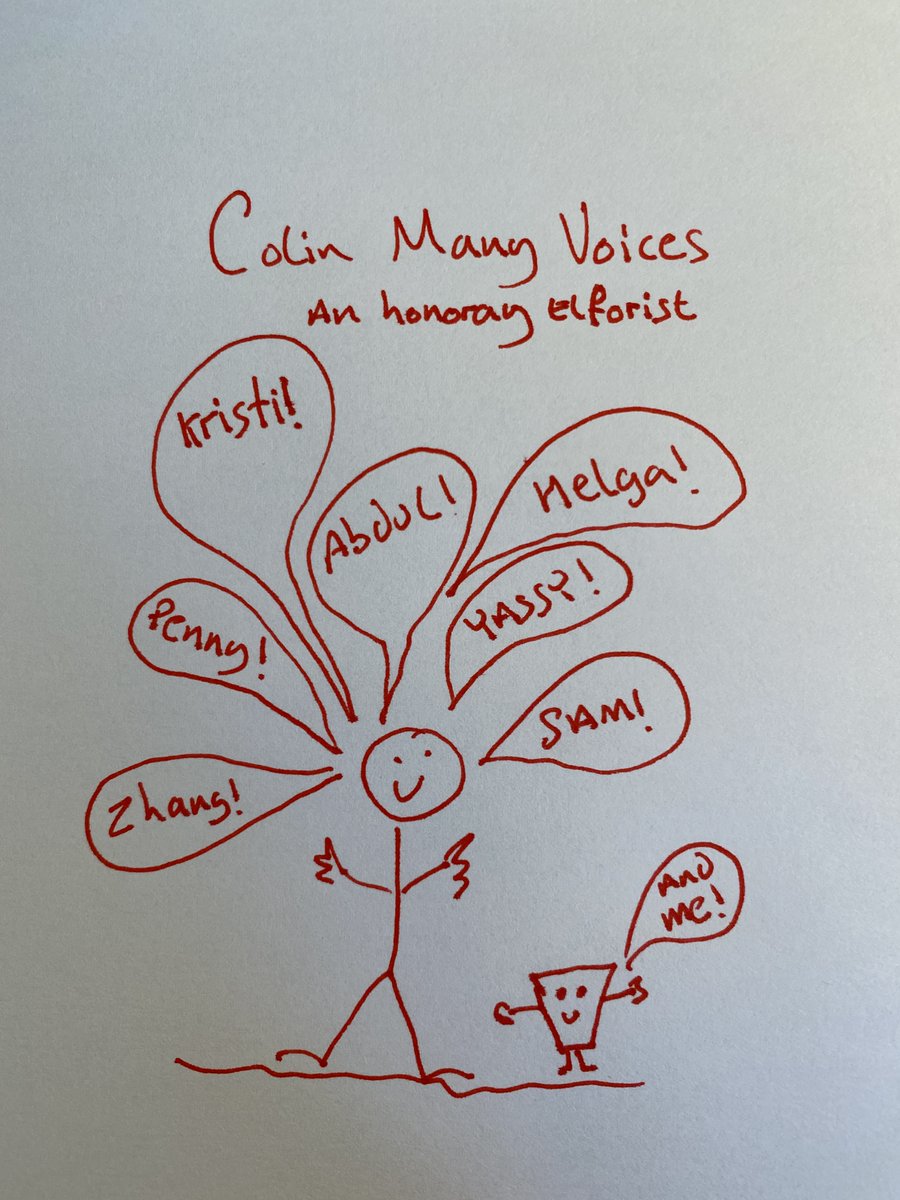 Colin Many Voices
An honoray Elforist
Kristi!
Abdul!
Helga!
Penny!
YASSY!
SAM!
Zhang!
AND
me!